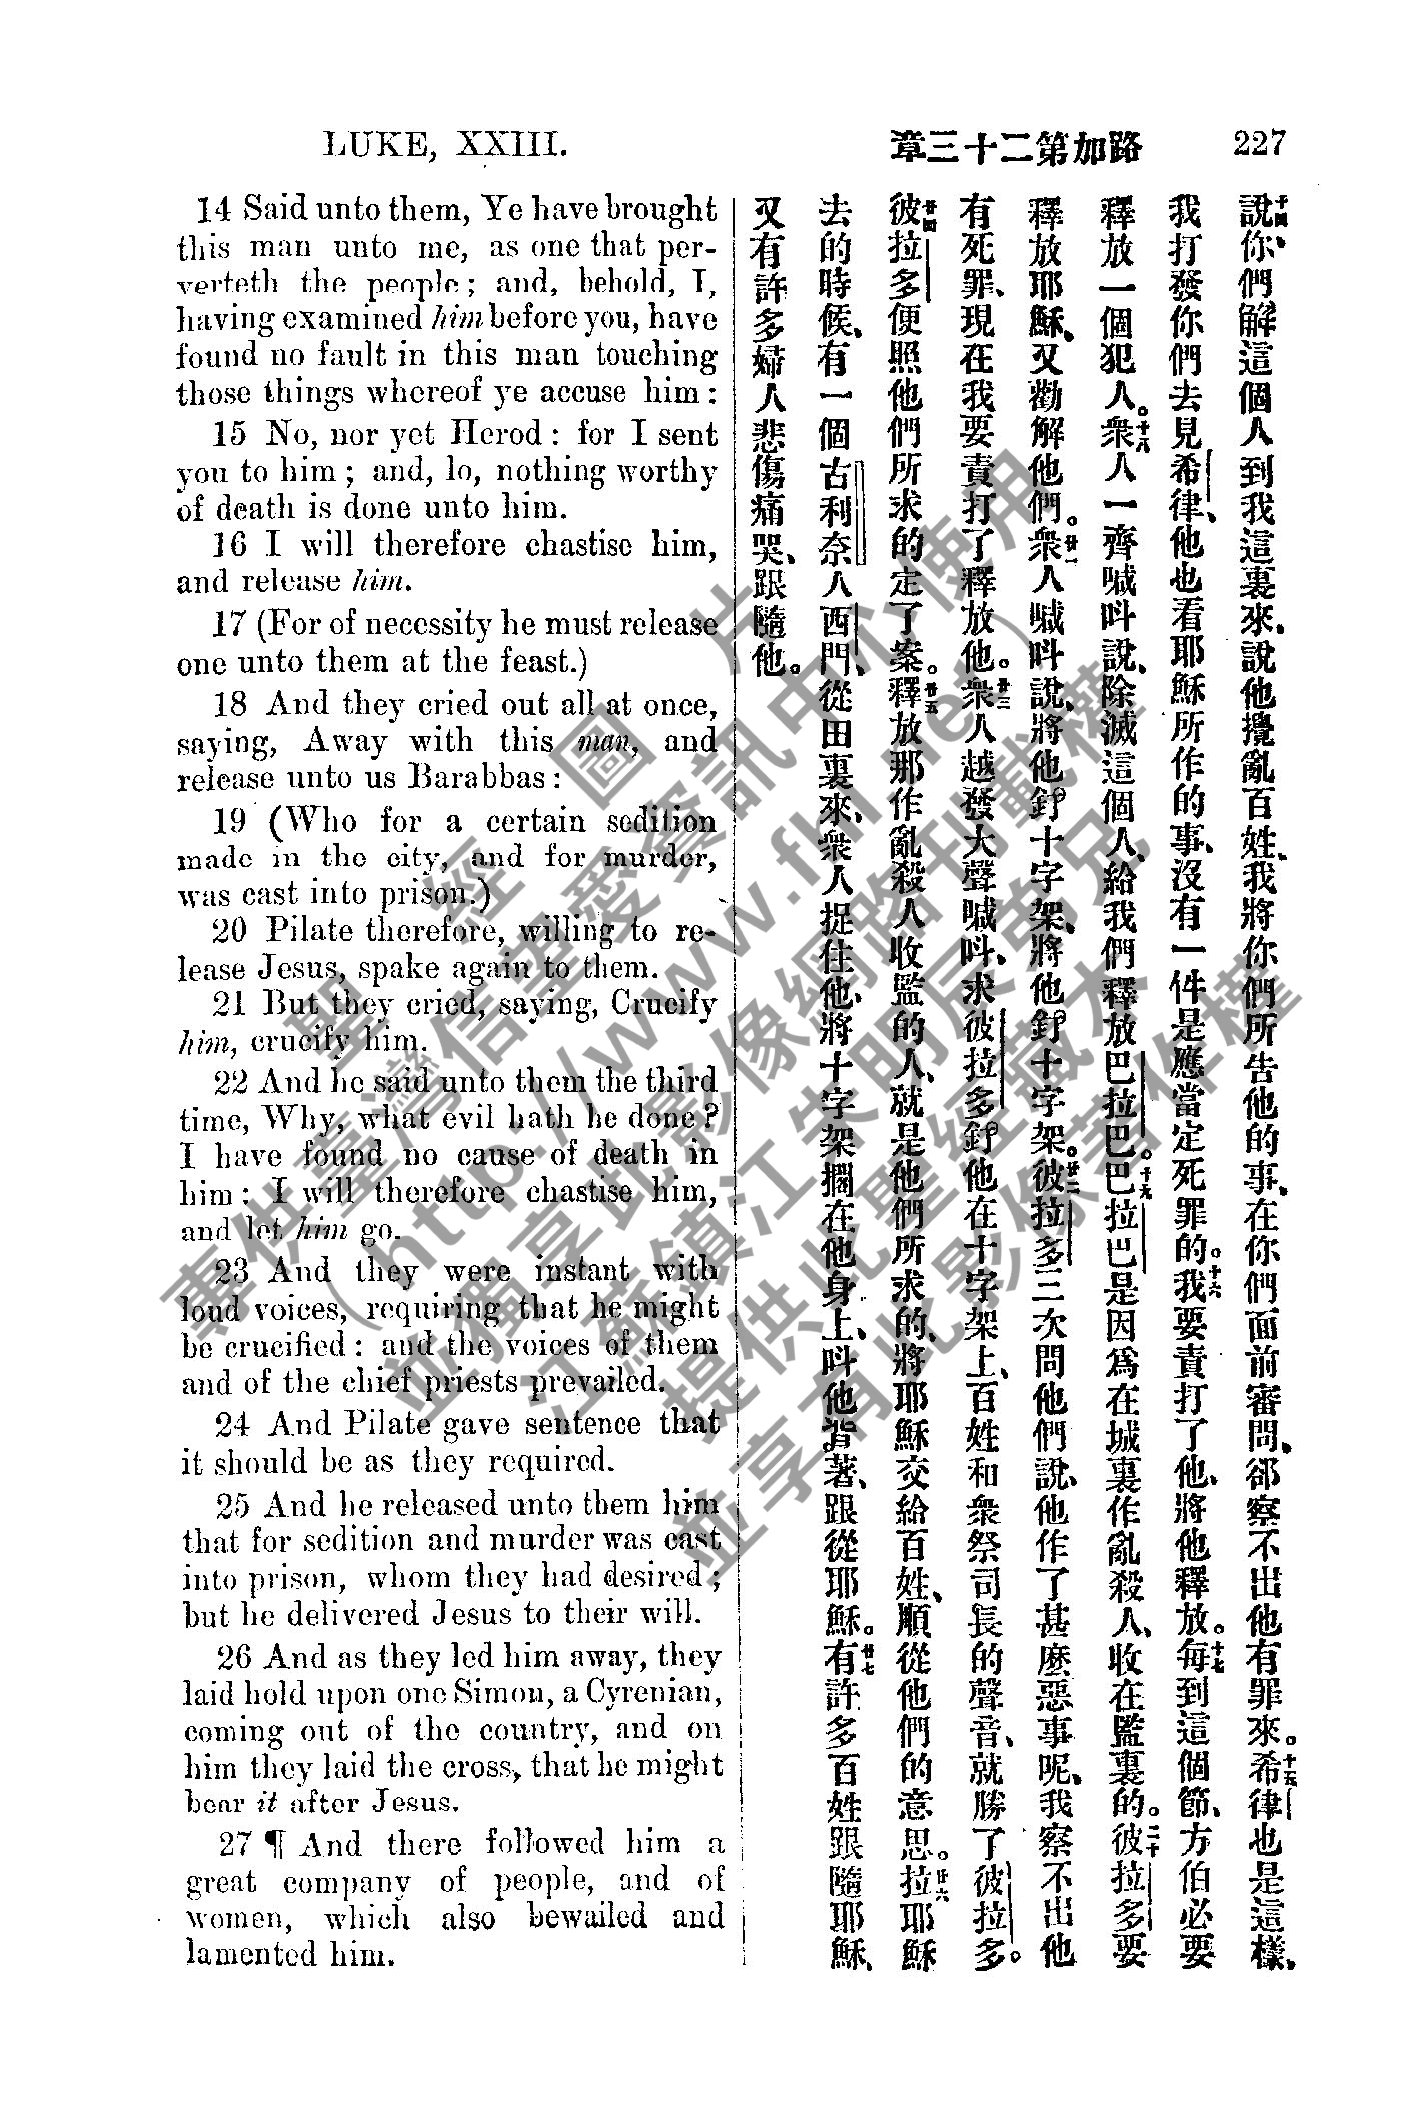 LUKE, XXIII.
章三十二第加路
227
14 Said unto them, Ye have brought
this man unto me, as one that per-
verteth the people; and, behold, I,
having examined him before you, have
found no fault in this man touching
those things whereof ye accuse him:
15 No, nor yet Herod: for I sent
you to him; and, lo, nothing worthy
of death is done unto him.
16 I will therefore chastise him,
and release him.
17 (For of necessity he must release
one unto them at the feast.)
18 And they cried out all at once,
saying, Away with this man, and
release unto us Barabbas:
19 (Who for a certain sedition
made in the city, and for murder,
was cast into prison.)
20 Pilate therefore, willing to re-
lease Jesus, spake again to them.
21 But they cried, saying, Crucify
him, crucify him.
22 And he said unto them the third
time, Why, what evil hath he done?
I have found no cause of death in
him: I will therefore chastise him,
and let him go.
23 And they were instant with
loud voices, requiring that he might
be crucified: and the voices of them
and of the chief priests prevailed.
24 And Pilate gave sentence that
it should be as they required.
25 And he released unto them him
that for sedition and murder was cast
into prison, whom they had desired;
but he delivered Jesus to their will.
26 And as they led him away, they
laid hold upon one Simon, a Cyrenian,
coming out of the country, and on
him they laid the cross, that he might
bear it after Jesus.
27 ¶ And there followed him a
great company of people, and of
women, which also bewailed and
lamented him.
十四說你們解這個人到我這裏來、說他攪亂百姓、我將你們所告他的事、在你們面前審問、郤察不出他有罪來。十五希律也是這樣、
我打發你們去見希律、他也看耶穌所作的事、沒有一件是應當定死罪的。十六我要責打了他、將他釋放。十七每到這個節、方伯必要
釋放一個犯人。十八衆人一齊喊呌說、除滅這個人、給我們釋放巴拉巴。十九巴拉巴是因爲在城裏作亂殺人、收在監裏的。二十彼拉多要
釋放耶穌、又勸解他們。廿一衆人喊呌說、將他釘十字架、將他釘十字架。廿二彼拉多三次問他們說、他作了甚麼惡事呢、我察不出他
有死罪、現在我要責打了釋放他。廿三衆人越發大聲喊呌、求彼拉多釘他在十字架上、百姓和衆祭司長的聲音、就勝了彼拉多。
廿四彼拉多便照他們所求的定了案。廿五釋放那作亂殺人收監的人、就是他們所求的、將耶穌交給百姓、順從他們的意思。廿六拉耶穌
去的時候、有一個古利奈人西門、從田裏來、衆人捉住他、將十字架擱在他身上、呌他背著、跟從耶穌。廿七有許多百姓跟隨耶穌、
又有許多婦人悲傷痛哭、跟隨他。
聖經圖片
專供臺灣信望愛資訊中心使用
( http://www.fhl.net )
並獨享此影像網路刊載權
江蘇鎮江朱明辰弟兄
提供此聖經藏本
並享有此影像著作權